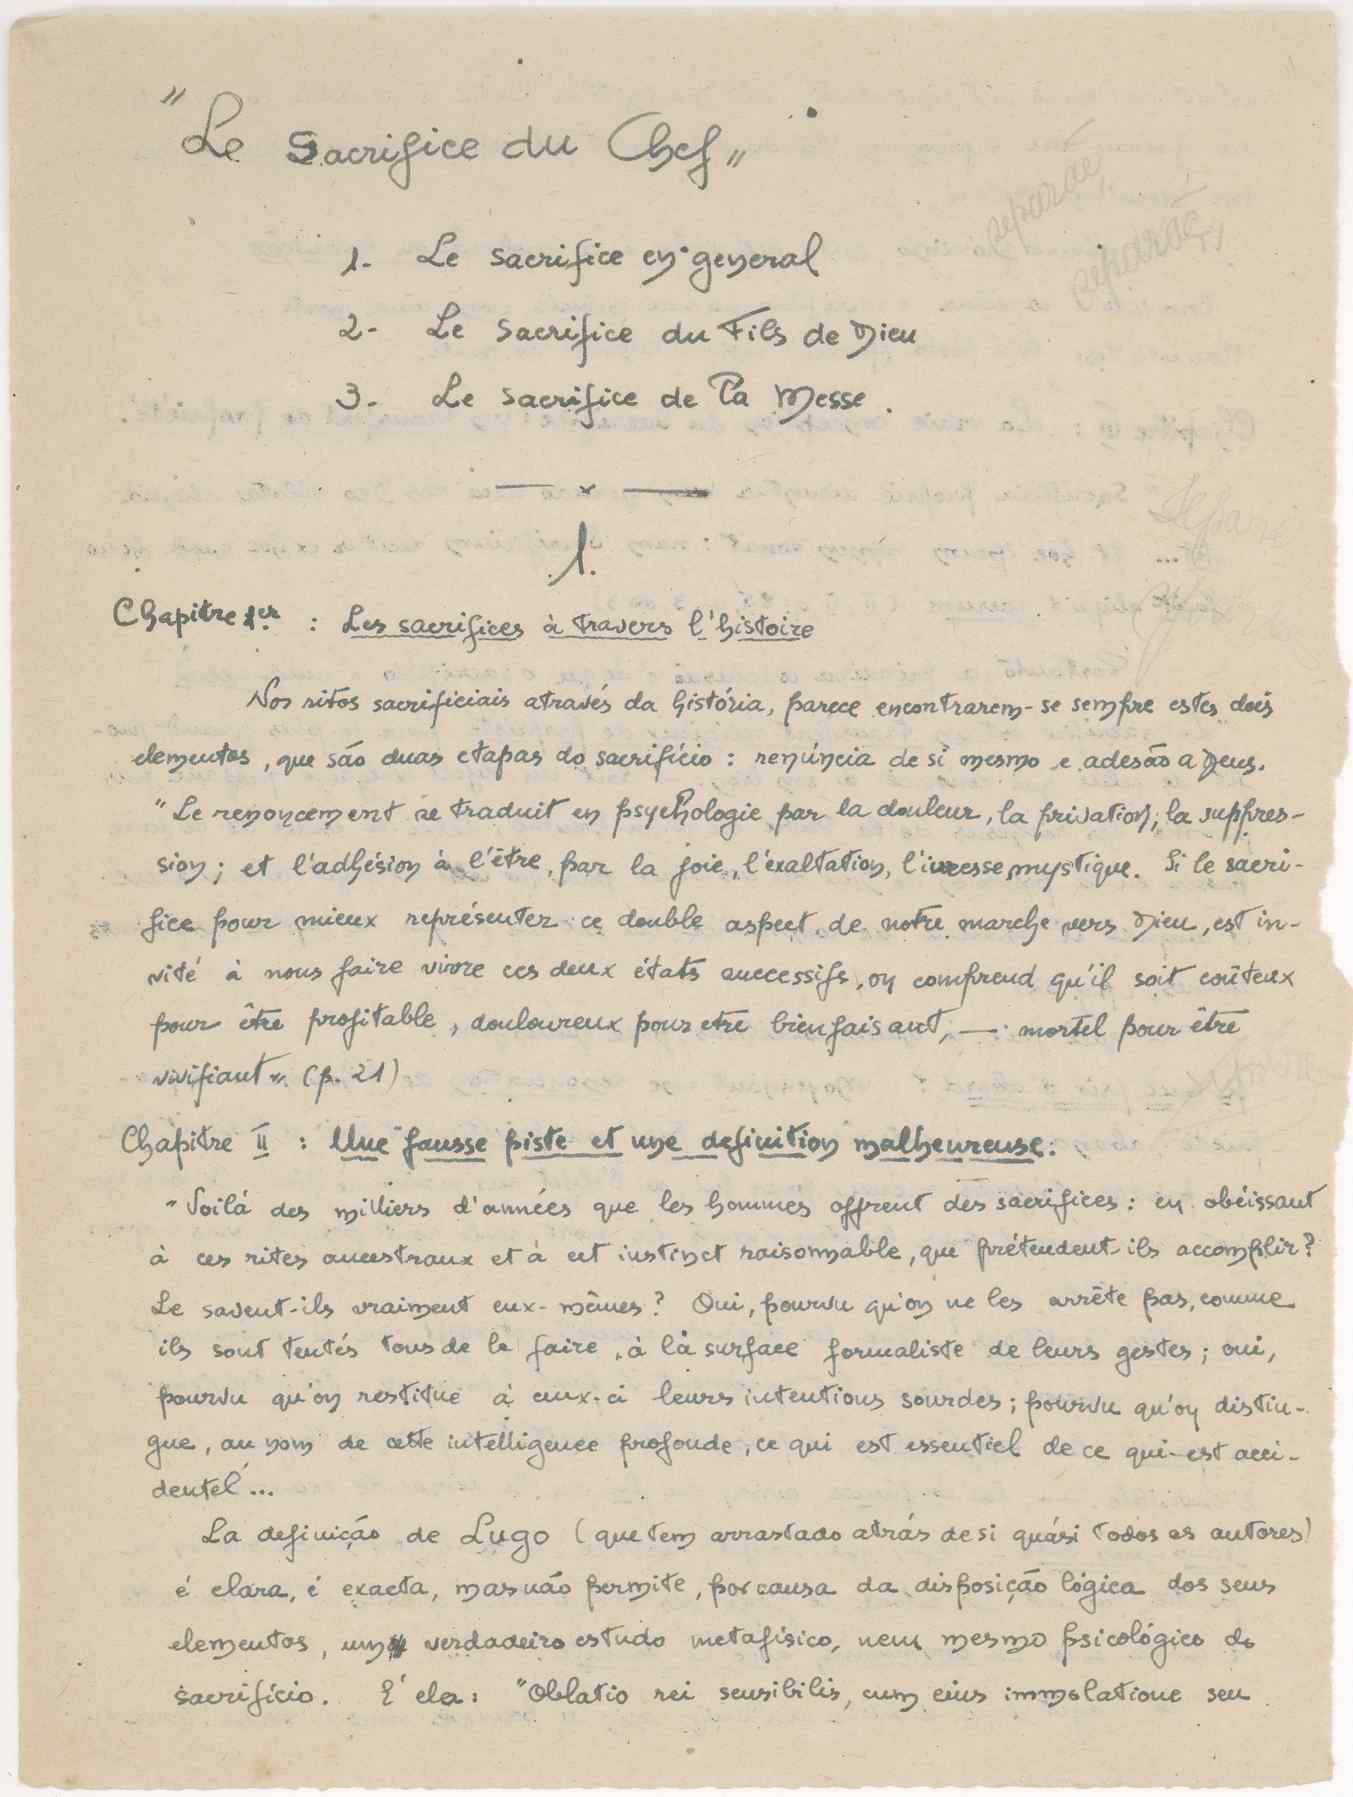 "Le Sacrifice du Chef"
1- Le sacrifice en general
2- Le Sacrifice du Fils de Dieu
3- Le sacrifice de la Messe.
x
1.
Chapitre 1er : Les sacrifices à travers l'histoire
Nos ritos sacrificiais através da história, parece encontrarem-se sempre estes dois
elementos, que são duas etapas do sacrifício : renúncia de si mesmo e adesão a Deus.
"Le renoncement se traduit en psychologie par la douleur, la privation, la suppres-
sion ; et l'adhésion à l'être, par la joie, l'éxaltation, l'ivresse mystique. Si le sacri-
fice pour mieux représenter ce double aspect de notre marche vers Dieu, est in-
vité à nous faire vivre ces deux états successifs, on comprend qu'il soit coûteux
pour être profitable, douloureux pour etre bienfaisant, — mortel pour être
vivifiant" (p. 21)
Chapitre II : Une fausse piste et une definition malheureuse.
"Voilá des milliers d'années que les hommes offrent des sacrifices : en obéissant
à ces rites ancestraux et à cet instinct raisonnable, que prétendent-ils accomplir ?
Le savent-ils vraiment eux-mêmes ? Oui, pourvu qu'on ne les arrête pas, comme
ils sont tentés tous de le faire, à la surface formaliste de leurs gestes ; oui,
pourvu qu'on restitue à ceux-ci leurs intentions sourdes ; pourvu qu'on distin-
gue, au nom de cette intelligence profonde, ce qui est essentiel de ce qui est acci-
dentel...
La definição de Lugo (que tem arrastado atrás de si quási todos os autores)
é clara, é exacta, mas não permite, por causa da disposição lógica dos seus
elementos, um verdadeiro estudo metafísico, nem mesmo psicológico do
sacrifício. E' ela : "Oblatio rei sensibilis, cum eius immolatione seu